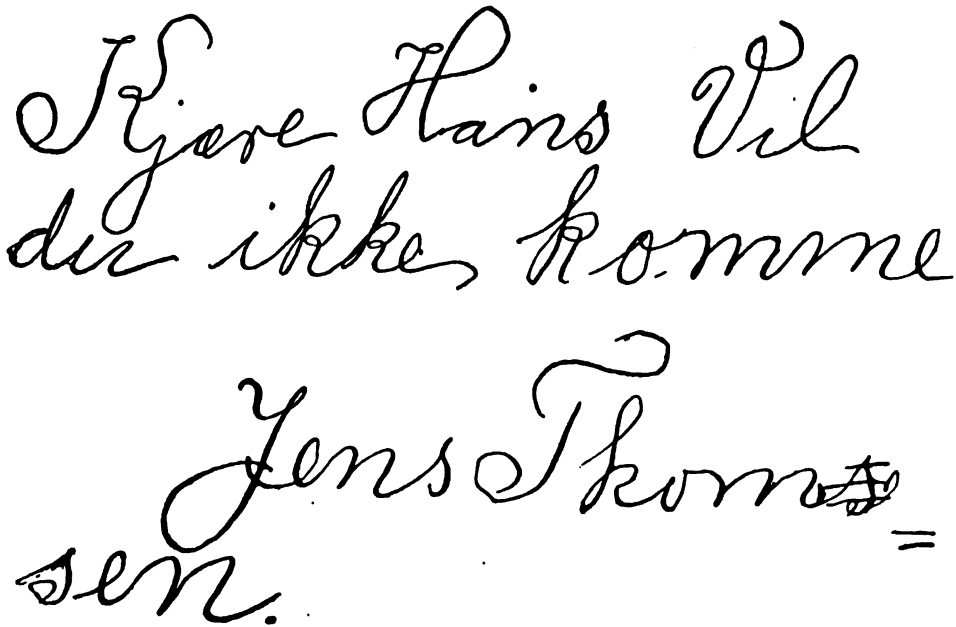 Kjære Hans Vil
du ikke komme
Jens Thom=
sen.